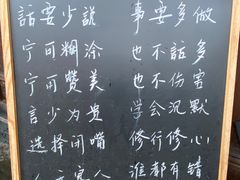 話要少説 事要多做
宁可糊涂 也不話多
宁可赞美 也不伤害
言少为贵 学会沉默
选择闭嘴 修行修心
谁都有错